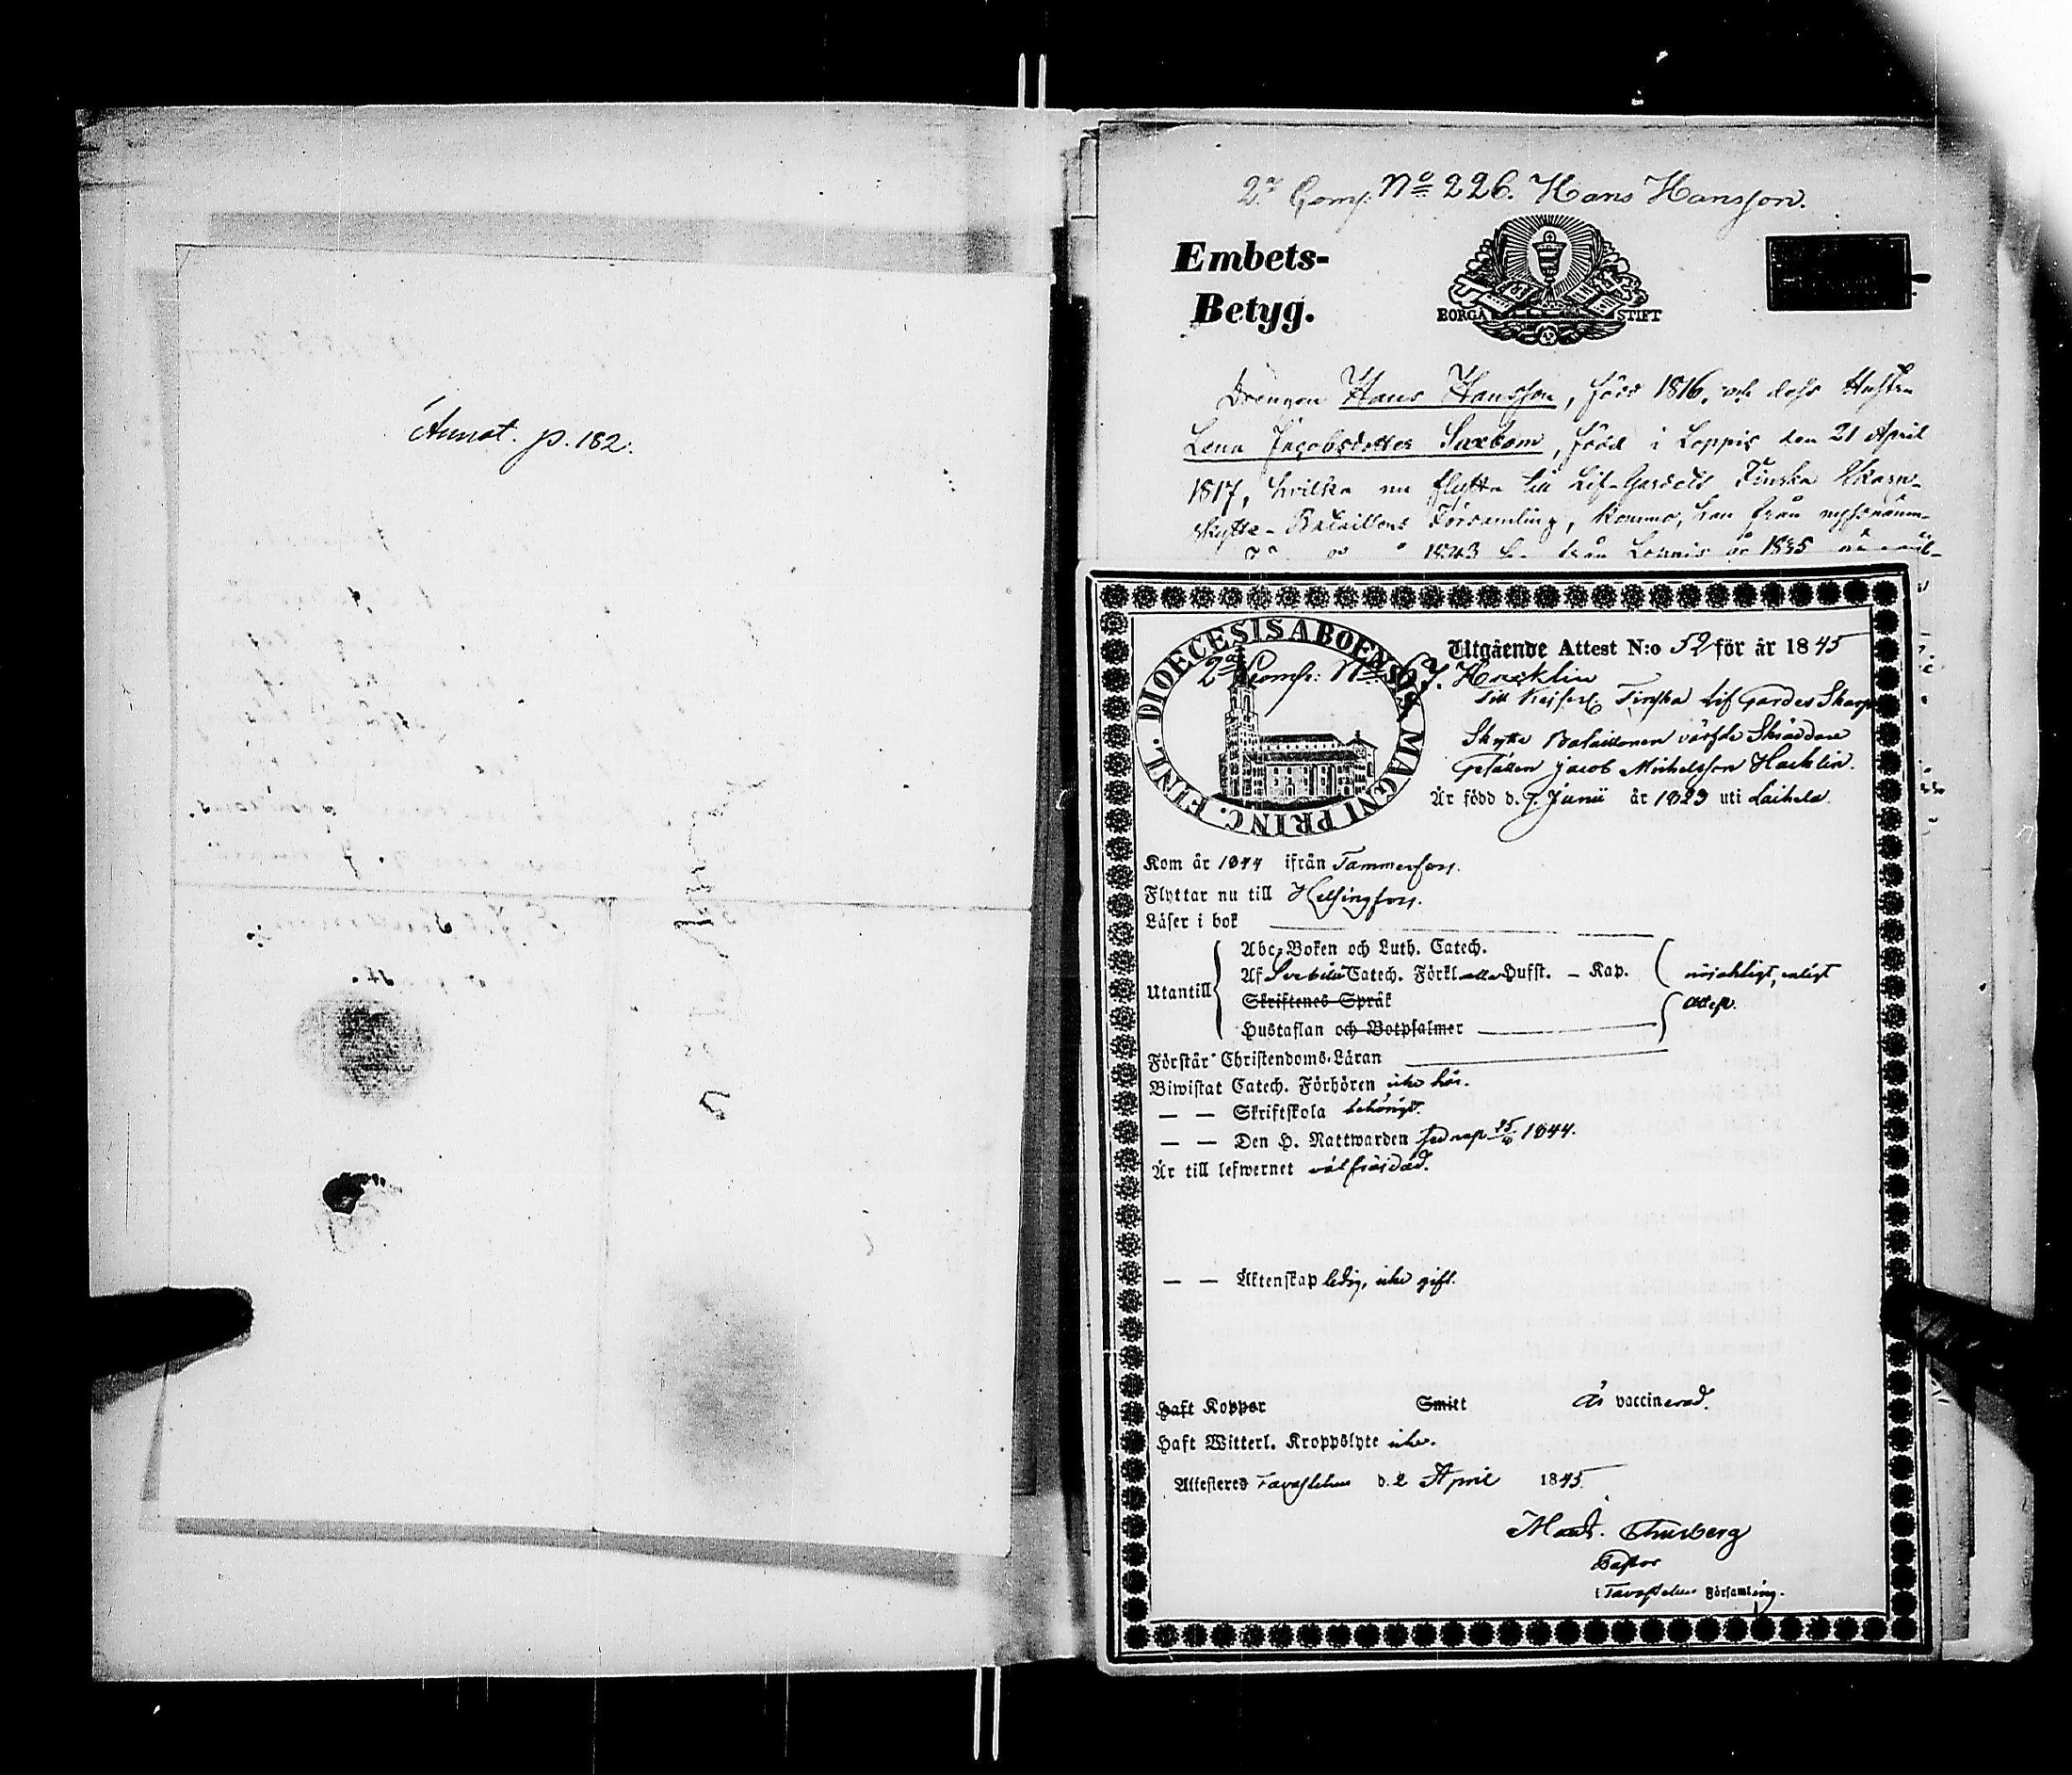 Annot. p. 182.
2:a Comp. No 226. Hans Hansson.
Embets-
Betyg.
BORGÅ STIFT
Drängen Hans Hansson, född 1816, och dess Hustru
Lena Jacobsdotter Saxbom, född i Loppis den 21 April
1817, hvilka nu flytta till Lif-Gardets Finska Skarp-
skytte-Bataillons Församling, kommo, han från
1843 från Loppis år 1835
DIOECESIS ABOENSIS MAGNI PRINC. FINL.
Utgående Attest N:o 52 för år 1845
2:a Comp: No 67. Hacklin
Till Kejserl. Finska Lif Gardes Skarp
Skytte Bataillonen värfde Skräddare
Gesällen Jacob Michelsson Hacklin.
Är född d. 7 Junii år 1823 uti Laihela
Kom år 1844 ifrån Tammerfors.
Flyttar nu till Helsingfors.
Läser i bok
Utantill
Abc-Boken och Luth. Catech.
Af Svebilii Catech. Förkl. alla Hufst. – Kap. nöjaktigt, enligt
Skriftenes Språk attest.
Hustaflan och Botpsalmer
Förstår Christendoms-Läran
Biwistat Catech. Förhören icke här.
— — Skriftskola behörigt.
— — Den H. Nattwarden 1844.
Är till lefwernet välfräjdad.
— — Äktenskap ledig, icke gift.
Haft Koppor Smitt Är vaccinerad.
Haft Witterl. Kroppslyte icke.
Attesteres Tavastehus d. 2 April 1845.
Pastor
i Tavastehus Församling.